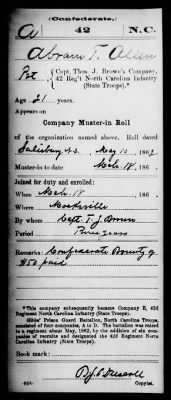 (Confederate.)
A 42 N.C.
Abram T. Allen
Pvt { Capt. Thos. J. Brown's Company,
42 Reg't North Carolina Infantry
(State Troops).*
Age 21 years.
Appears on
Company Muster-in Roll
of the organization named above. Roll dated
Salisbury N.C. May 10, 1862.
Muster-in to date Mch. 18, 186
Joined for duty and enrolled:
When Mch. 18, 186
Where Mocksville
By whom Capt. T. J. Brown
Period Three years
Remarks: Confederate Bounty of
$50 paid
*This company subsequently became Company E, 42d
Regiment North Carolina Infantry (State Troops).
Gibbs' Prison Guard Battalion, North Carolina,
consisted of four companies, A to D. The battalion was raised
to a regiment about May, 1862, by the addition of six com-
panies of recruits and designated the 42d Regiment North
Carolina Infantry (State Troops).
Book mark:
Copyist.